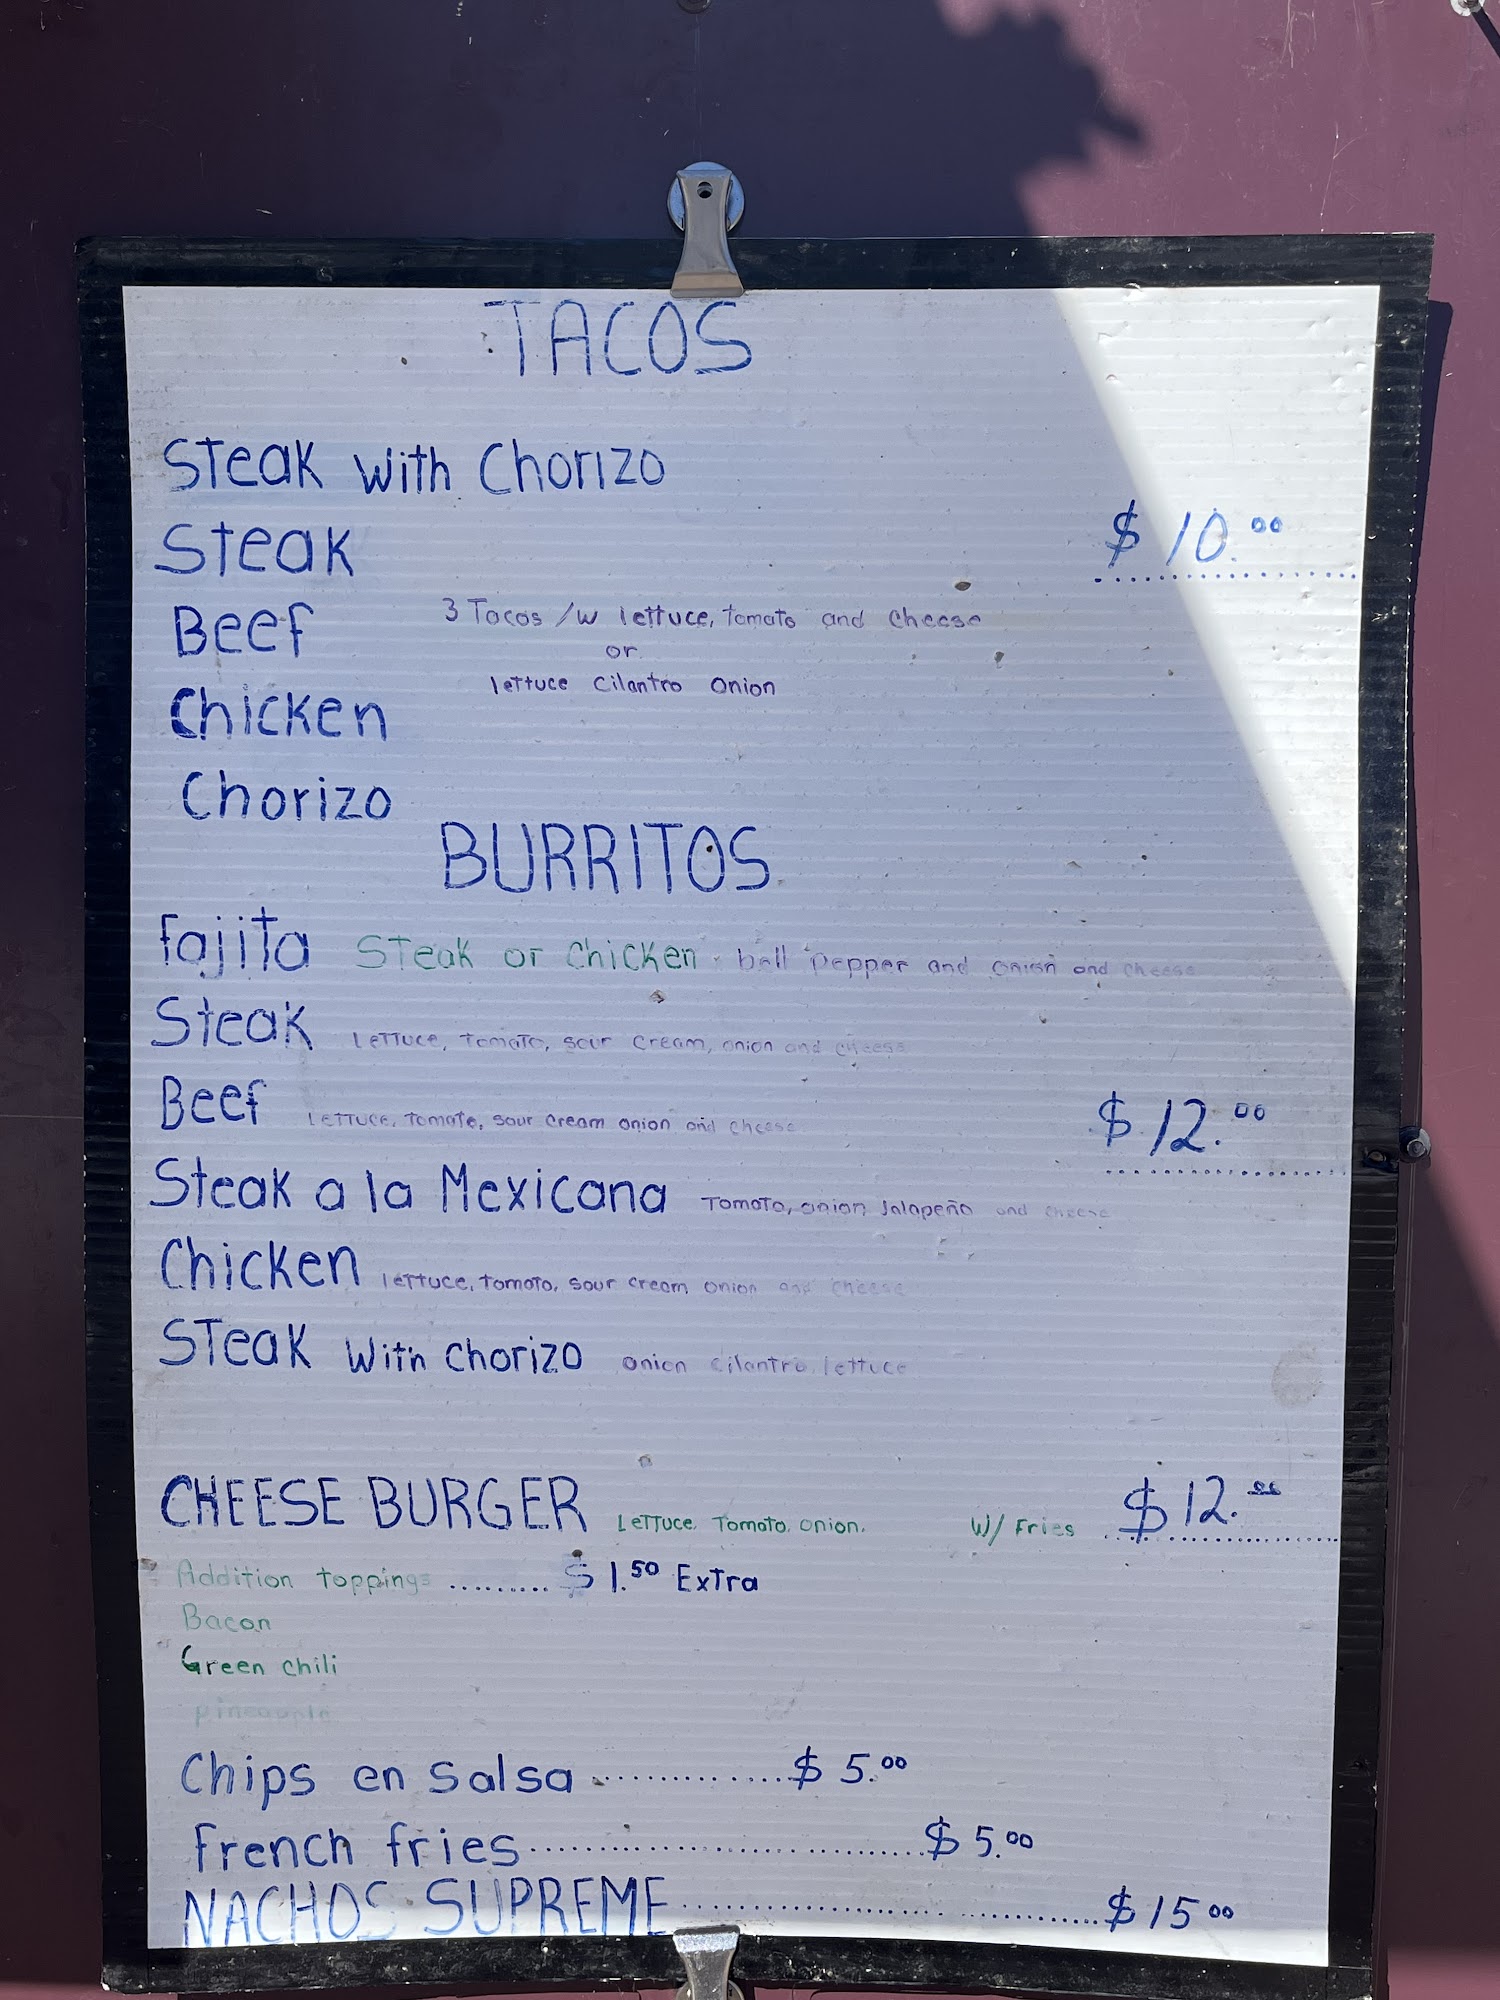 TACOS
Steak with Chorizo
Steak
$10.00
Beef
3 Tacos /w lettuce, tomato and cheese
or
lettuce cilantro onion
Chicken
Chorizo
BURRITOS
Fajita Steak or Chicken bell pepper and onion and cheese
Steak Lettuce, tomato, sour cream, onion and cheese
Beef Lettuce, tomate, sour cream onion and cheese
$12.00
Steak a la Mexicana Tomato, onion Jalapeño and cheese
Chicken lettuce, tomato, sour cream onion and cheese
Steak With Chorizo onion cilantro lettuce
CHEESE BURGER Lettuce, Tomato, onion. W/ Fries $12.00
Addition toppings ......... $1.50 Extra
Bacon
Green chili
pineapple
Chips en Salsa ............. $5.00
French fries ............................. $5.00
NACHOS SUPREME ............................. $15 00